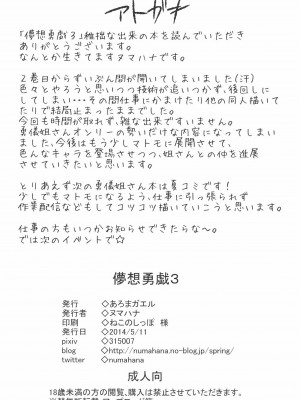 アトガキ
「儚想勇戯3」雑拙な出来の本を読んでいただき
ありがとうございます。
なんとか生きてますヌマハナです。
2巻目からずいぶん間が開いてしまいました(汗)
色々とやろうと思いつつ技術が追いつかず、後回しに
してしまい・・・その間仕事にかまけたり他の同人書いて
たりで結局止まったままでした。
今回も時間が取れず、雑な出来ですいません。
勇儀姐さんオンリーの勢いだけな内容になってしまい
ました、今後はもう少しマトモに展開させて、
色んなキャラを登場させつつ、姐さんとの仲を進展
させていきたいと思います。
とりあえず次の勇儀姐さん本は夏コミです!
少しでもマトモになるよう、仕事に引っ張られず
作業配信などもしてコツコツ描いていこうと思います。
仕事の方もいつかお知らせできたらな〜。
では次のイベントで☆
儚想勇戯3
発行 ◇あろまガエル
著者 ◇ヌマハナ
印刷 ◇ねこのしっぽ 様
発行日 ◇2014/5/11
pixiv ◇315007
blog ◇http://numahana.no-blog.jp/spring/
twitter ◇numahana
成人向
18歳未満の方の閲覧、購入は禁止させていただきます。